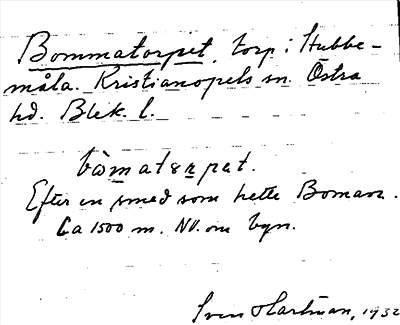 Bommatorpet, torp i Hubbe-
måla. Kristianopels sn. Östra
hd. Blek. l.
bòmatərpət.
Efter en smed som hette Boman.
Ca 1500 m. NV. om byn.
Sven Hartman, 1932